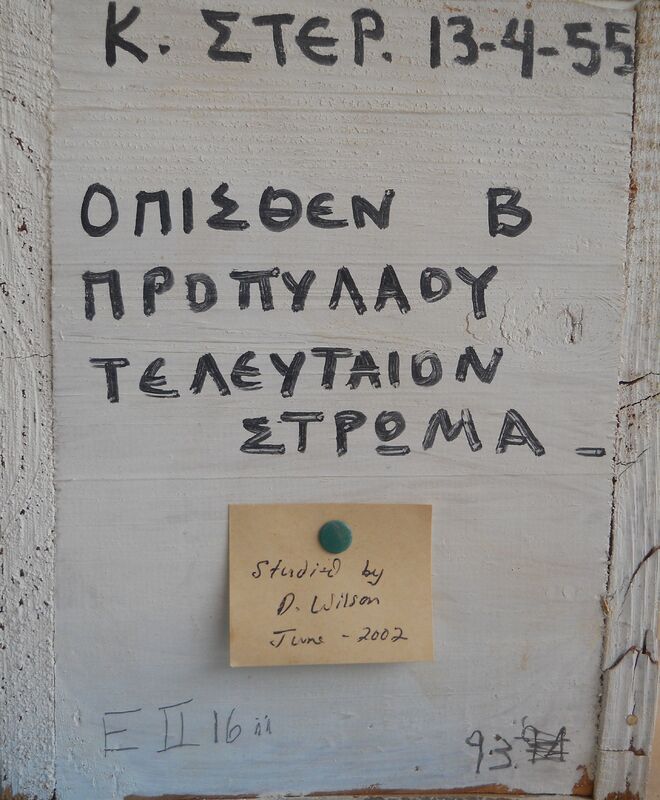 Κ. ΣΤΕΡ. 13-4-55
ΟΠΙΣΘΕΝ Β
ΠΡΟΠΥΛΑΟΥ
ΤΕΛΕΥΤΑΙΟΝ
ΣΤΡΩΜΑ _
Studied by
D. Wilson
June - 2002
E II 16
93.